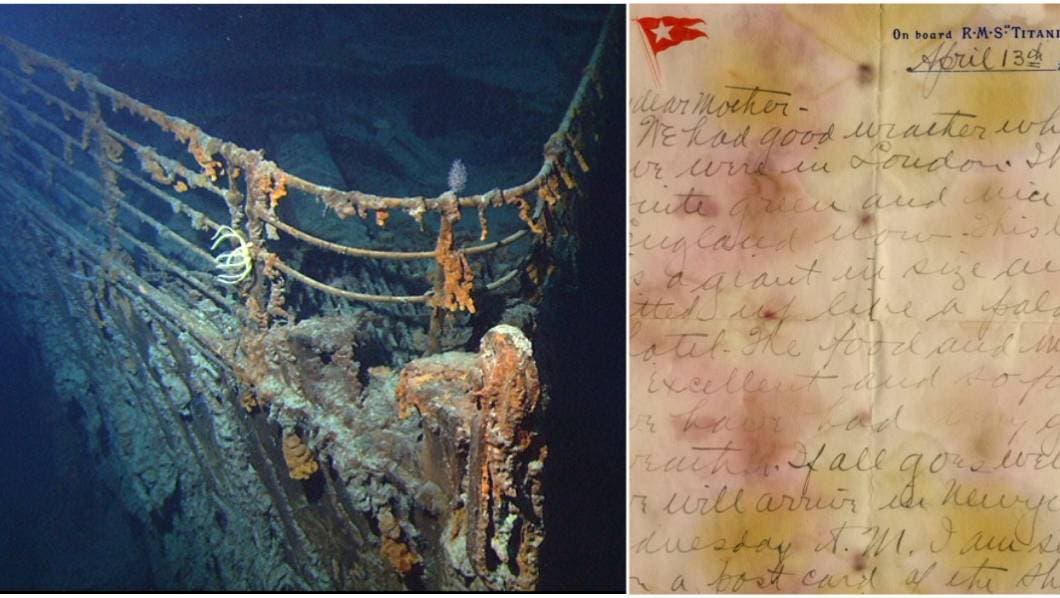 On board R·M·S·"TITANI
April 13th
dear Mother-
We had good weather wh
we were in London. Th
uite green and nic
England now. This
s a giant in size an
tted up like a pal
hotel. The food and m
Excellent and so fa
we have had very
weather. If all goes well
we will arrive in Newyo
dnesday A.M. I am s
a post card of the Sh